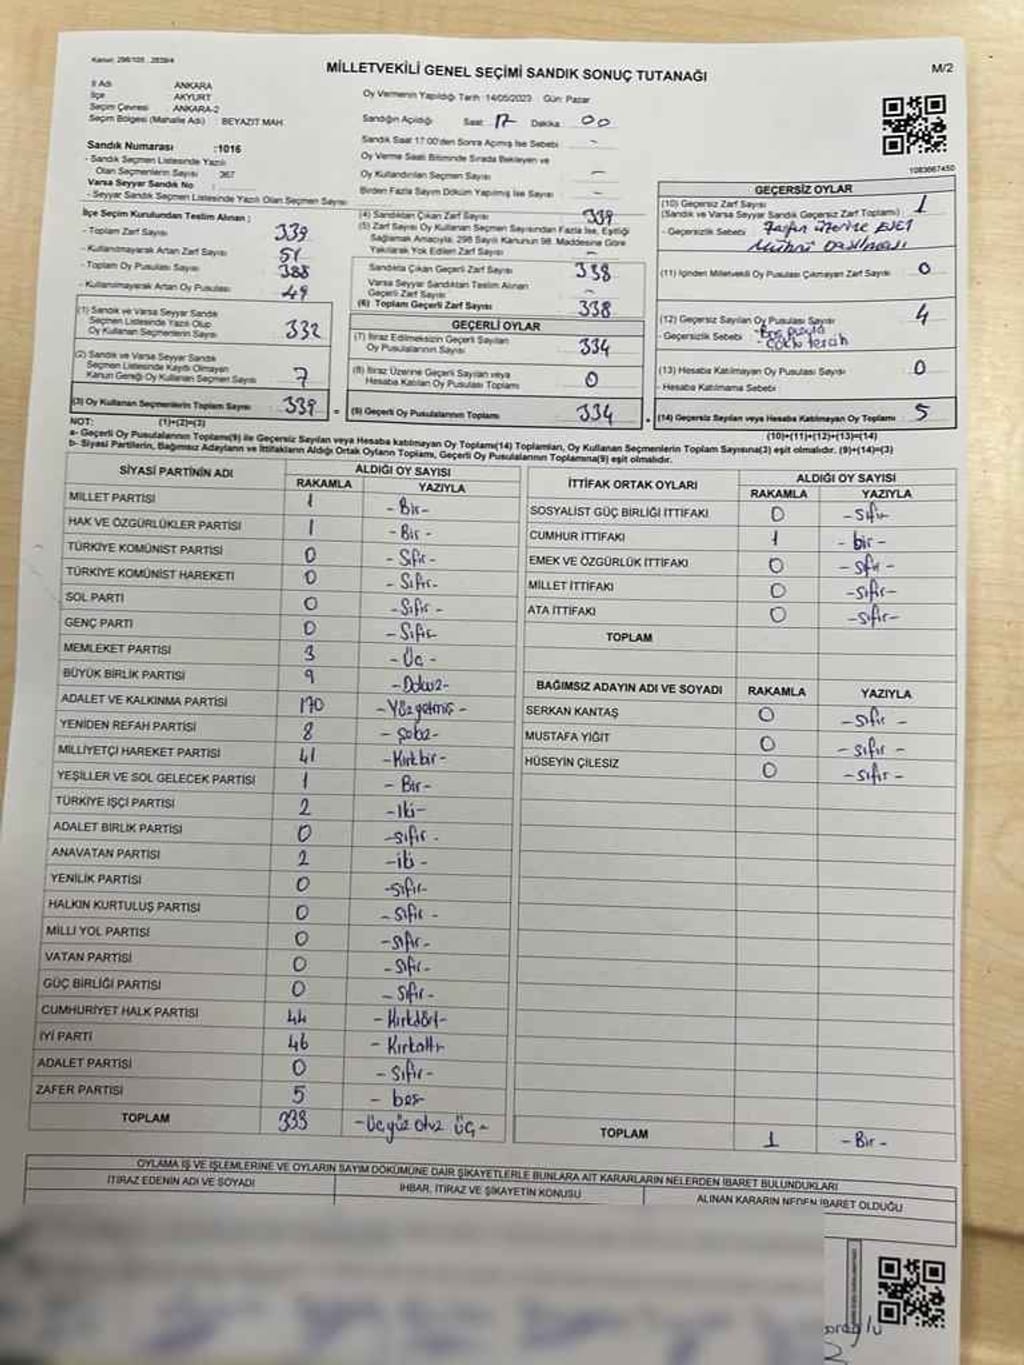 Kanun: 298/105 , 2839/4
MİLLETVEKİLİ GENEL SEÇİMİ SANDIK SONUÇ TUTANAĞI
M/2
İl Adı ANKARA
İlçe AKYURT
Seçim Çevresi ANKARA-2
Seçim Bölgesi (Mahalle Adı) : BEYAZIT MAH
Sandık Numarası :1016
- Sandık Seçmen Listesinde Yazılı
Olan Seçmenlerin Sayısı 367
Varsa Seyyar Sandık No :
- Seyyar Sandık Seçmen Listesinde Yazılı Olan Seçmen Sayısı
Oy Vermenin Yapıldığı Tarih :14/05/2023 Gün: Pazar
Sandığın Açıldığı Saat: 17 Dakika: 00
Sandık Saat 17:00'den Sonra Açılmış İse Sebebi -
Oy Verme Saati Bitiminde Sırada Bekleyen ve
Oy Kullandırılan Seçmen Sayısı -
Birden Fazla Sayım Döküm Yapılmış İse Sayısı -
1083667450
İlçe Seçim Kurulundan Teslim Alınan :
- Toplam Zarf Sayısı 339
- Kullanılmayarak Artan Zarf Sayısı 51
- Toplam Oy Pusulası Sayısı 388
- Kullanılmayarak Artan Oy Pusulası 49
(1) Sandık ve Varsa Seyyar Sandık
Seçmen Listesinde Yazılı Olup
Oy Kullanan Seçmenlerin Sayısı 332
(2) Sandık ve Varsa Seyyar Sandık
Seçmen Listesinde Kaydı Olmayan
Kanun Gereği Oy Kullanan Seçmen Sayısı 7
(3) Oy Kullanan Seçmenlerin Toplam Sayısı 339 =
(4) Sandıktan Çıkan Zarf Sayısı 339
(5) Zarf Sayısı Oy Kullanan Seçmen Sayısından Fazla İse, Eşitliği
Sağlamak Amacıyla; 298 Sayılı Kanunun 98. Maddesine Göre
Yakılarak Yok Edilen Zarf Sayısı -
Sandıkta Çıkan Geçerli Zarf Sayısı 338
Varsa Seyyar Sandıktan Teslim Alınan
Geçerli Zarf Sayısı -
(6) Toplam Geçerli Zarf Sayısı 338
GEÇERLİ OYLAR
(7) İtiraz Edilmeksizin Geçerli Sayılan
Oy Pusulalarının Sayısı 334
(8) İtiraz Üzerine Geçerli Sayılan veya
Hesaba Katılan Oy Pusulası Toplamı 0
(9) Geçerli Oy Pusulalarının Toplamı 334 +
GEÇERSİZ OYLAR
(10) Geçersiz Zarf Sayısı 1
(Sandık ve Varsa Seyyar Sandık Geçersiz Zarf Toplamı)
- Geçersizlik Sebebi : Zarfın üzerine EVET
Mührü
(11) İçinden Milletvekili Oy Pusulası Çıkmayan Zarf Sayısı 0
(12) Geçersiz Sayılan Oy Pusulası Sayısı 4
- Geçersizlik Sebebi
- çoklu tercih
(13) Hesaba Katılmayan Oy Pusulası Sayısı 0
- Hesaba Katılmama Sebebi
(14) Geçersiz Sayılan veya Hesaba Katılmayan Oy Toplamı 5
NOT: (1)+(2)=(3)
(10)+(11)+(12)+(13)=(14)
a- Geçerli Oy Pusulalarının Toplamı(9) ile Geçersiz Sayılan veya Hesaba katılmayan Oy Toplamı(14) Toplamları, Oy Kullanan Seçmenlerin Toplam Sayısına(3) eşit olmalıdır. (9)+(14)=(3)
b- Siyasi Partilerin, Bağımsız Adayların ve İttifakların Aldığı Ortak Oyların Toplamı, Geçerli Oy Pusulalarının Toplamına(9) eşit olmalıdır.
SİYASİ PARTİNİN ADI ALDIĞI OY SAYISI
RAKAMLA YAZIYLA
MİLLET PARTİSİ 1 -Bir-
HAK VE ÖZGÜRLÜKLER PARTİSİ 1 -Bir-
TÜRKİYE KOMÜNİST PARTİSİ 0 -Sıfır-
TÜRKİYE KOMÜNİST HAREKETİ 0 -Sıfır-
SOL PARTİ 0 -Sıfır-
GENÇ PARTİ 0 -Sıfır-
MEMLEKET PARTİSİ 3 -Üç-
BÜYÜK BİRLİK PARTİSİ 9 -Dokuz-
ADALET VE KALKINMA PARTİSİ 170 -Yüzyetmiş-
YENİDEN REFAH PARTİSİ 8 -Sekiz-
MİLLİYETÇİ HAREKET PARTİSİ 41 -Kırkbir-
YEŞİLLER VE SOL GELECEK PARTİSİ 1 -Bir-
TÜRKİYE İŞÇİ PARTİSİ 2 -iki-
ADALET BİRLİK PARTİSİ 0 -sıfır-
ANAVATAN PARTİSİ 2 -iki-
YENİLİK PARTİSİ 0 -sıfır-
HALKIN KURTULUŞ PARTİSİ 0 -sıfır-
MİLLİ YOL PARTİSİ 0 -sıfır-
VATAN PARTİSİ 0 -sıfır-
GÜÇ BİRLİĞİ PARTİSİ 0 -sıfır-
CUMHURİYET HALK PARTİSİ 44 -Kırkdört-
İYİ PARTİ 46 -Kırkaltı
ADALET PARTİSİ 0 -sıfır-
ZAFER PARTİSİ 5 -beş-
TOPLAM 333 -üçyüz otuz üç-
İTTİFAK ORTAK OYLARI ALDIĞI OY SAYISI
RAKAMLA YAZIYLA
SOSYALİST GÜÇ BİRLİĞİ İTTİFAKI 0 -sıfır-
CUMHUR İTTİFAKI 1 -bir-
EMEK VE ÖZGÜRLÜK İTTİFAKI 0 -sıfır-
MİLLET İTTİFAKI 0 -sıfır-
ATA İTTİFAKI 0 -sıfır-
TOPLAM
BAĞIMSIZ ADAYIN ADI VE SOYADI RAKAMLA YAZIYLA
SERKAN KANTAŞ 0 -sıfır-
MUSTAFA YİĞİT 0 -sıfır-
HÜSEYİN ÇİLESİZ 0 -sıfır-
TOPLAM 1 -Bir-
OYLAMA İŞ VE İŞLEMLERİNE VE OYLARIN SAYIM DÖKÜMÜNE DAİR ŞİKAYETLERLE BUNLARA AİT KARARLARIN NELERDEN İBARET BULUNDUKLARI
İTİRAZ EDENİN ADI VE SOYADI İHBAR, İTİRAZ VE ŞİKAYETİN KONUSU ALINAN KARARIN NEDEN İBARET OLDUĞU